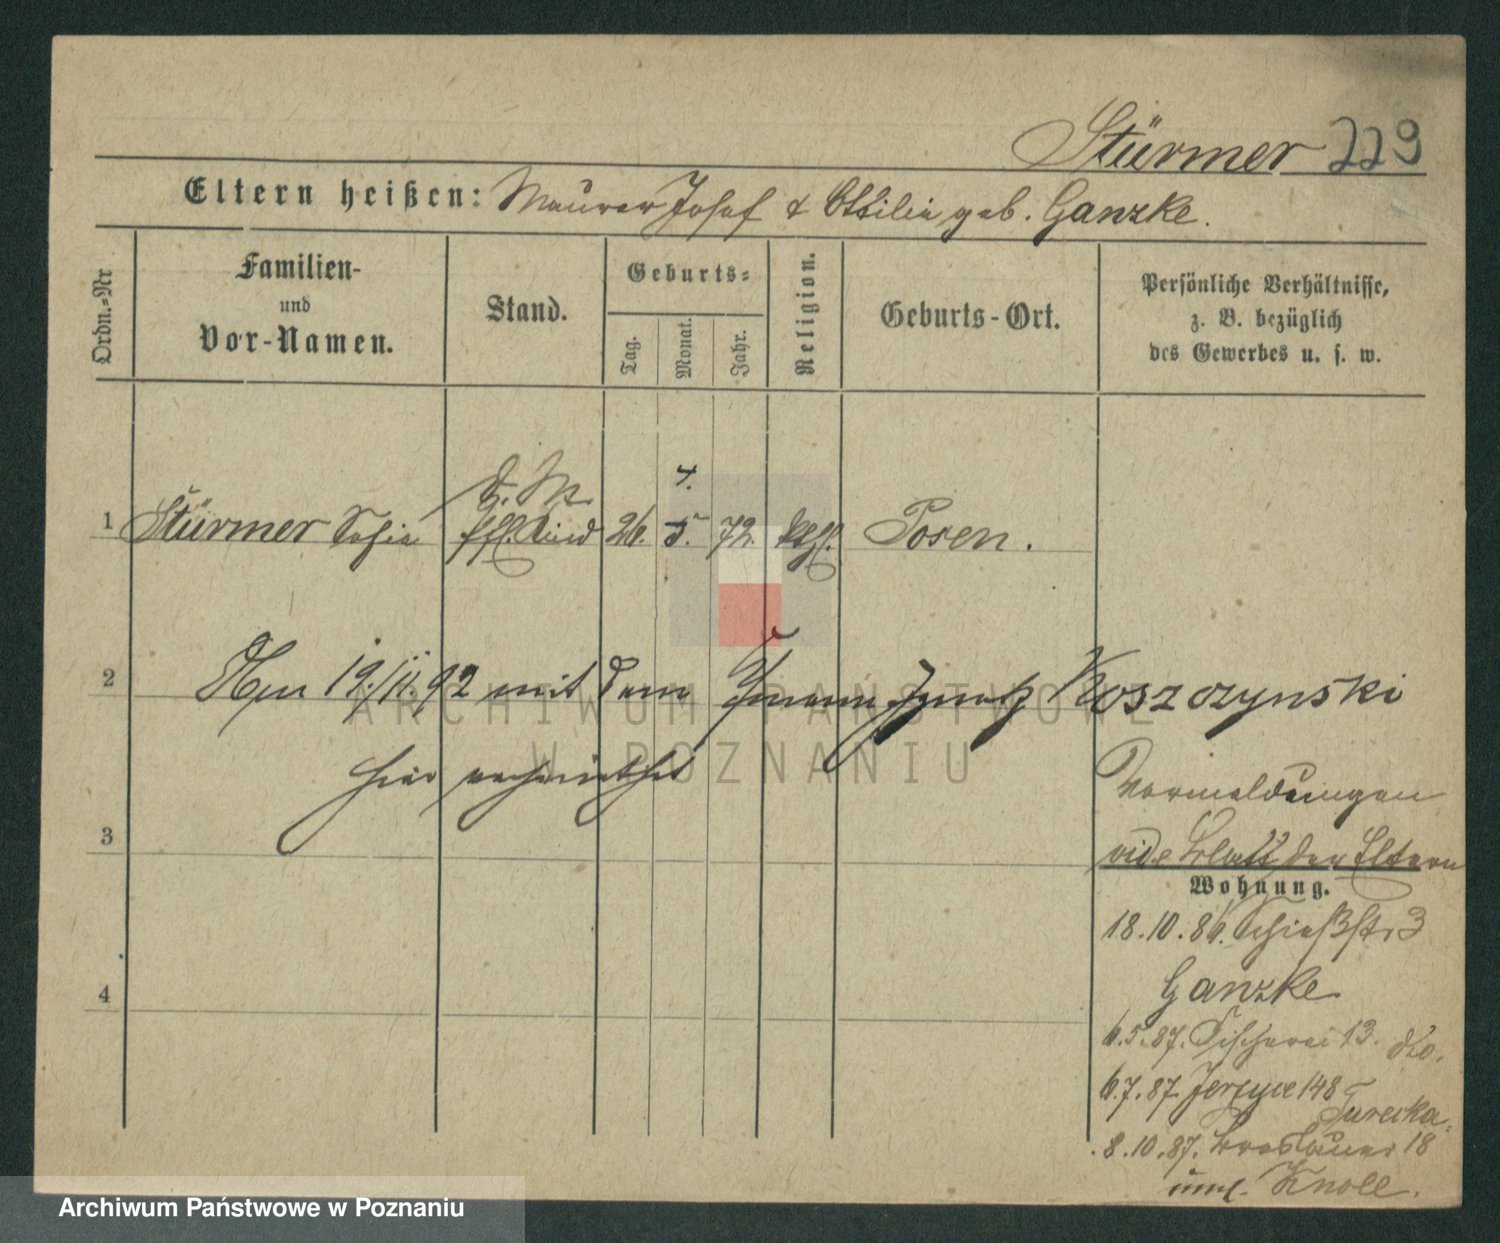 Stürmer 229
Eltern heißen: Maurer Josef & Ottilie geb. Ganzke.
Ordn.-Nr
Familien-
und
Vor-Namen.
Stand.
Geburts-
Tag.
Monat.
Jahr.
Religion.
Geburts-Ort.
Persönliche Verhältnisse,
z. B. bezüglich
des Gewerbes u. s. w.
d. M.
4.
1 Stürmer Sofie 26. 5. 72. Posen.
2 19./11. 92 mit dem Ignatz Koszczynski
hier verheirathet
Vormeldungen
3 vide Blatt der Eltern
Wohnung.
18.10.86. Schießstr 3
Ganzke
4
6.5.87. Fischerei 13. do.
6.7.87 Jerzyce 148
Turecka.
8.10.87. Breslauer 18
Knoll.
ARCHIWUM PAŃSTWOWE
W POZNANIU
Archiwum Państwowe w Poznaniu